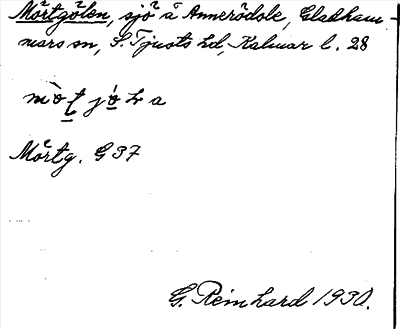 Mörtgölen, sjö å Annerödole, Gladham-
mars sn, S. Tjusts hd, Kalmar l. 28
Mörtg. G 37
G. Reinhard 1930.